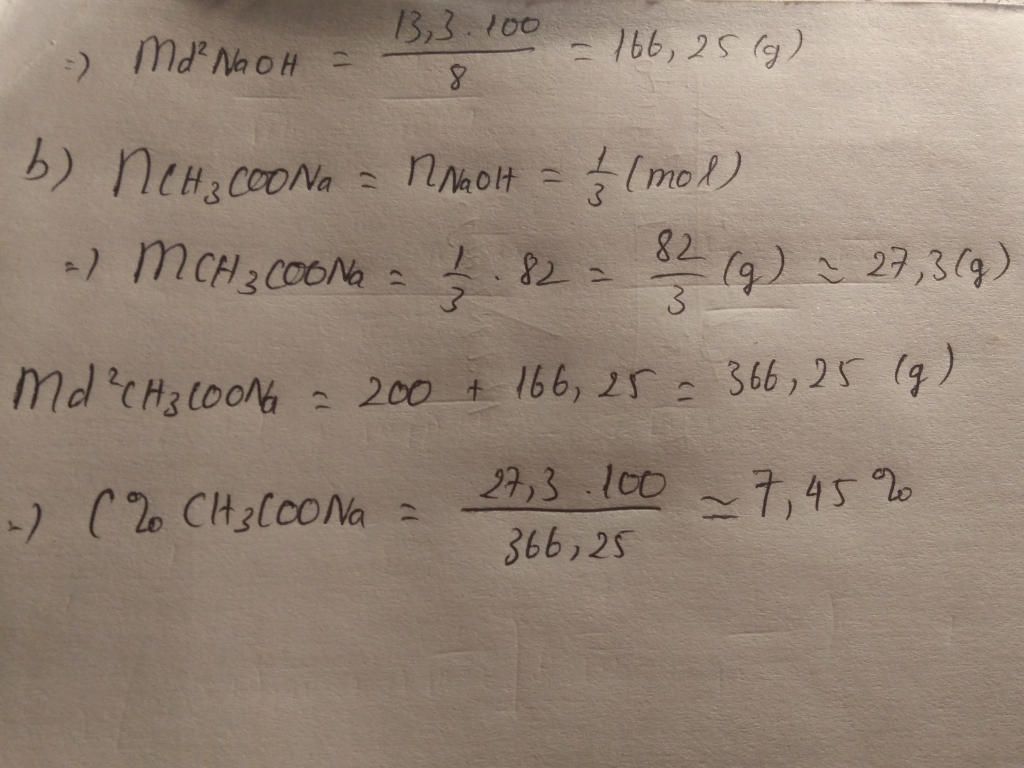 =) md²NaOH = 13,3 . 100 / 8 = 166,25 (g)
b) nCH₃COONa = nNaOH = 1/3 (mol)
=) mCH₃COONa = 1/3 . 82 = 82/3 (g) ≈ 27,3(g)
md²CH₃COONa = 200 + 166,25 = 366,25 (g)
=) C% CH₃COONa = 27,3 . 100 / 366,25 ≃ 7,45%